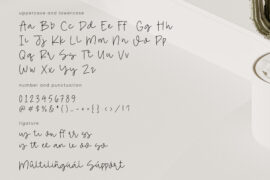 uppercase and lowercase
Aa Bb Cc Dd Ee Ff Gg Hh
Ii Jj Kk Ll Mm Nn Oo Pp
Qq Rr Ss Tt Uu Vv
Ww Xx Yy Zz
number and punctuation
0123456789
ligature
Multilingual Support